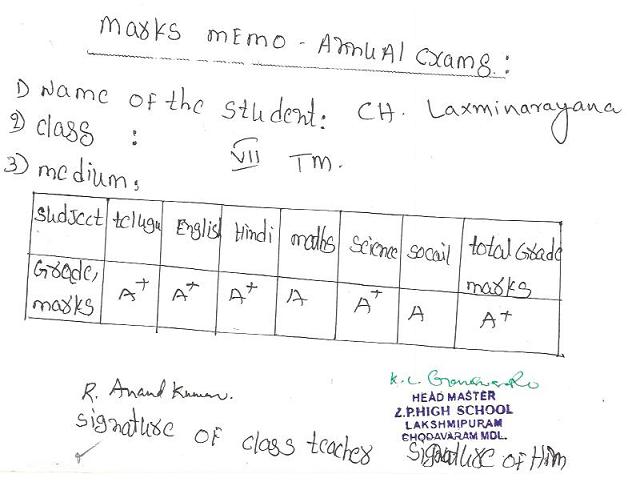 Marks memo - Annual Exams :
1) Name of the student: CH. Laxminarayana
2) class : VII TM.
3) medium :
Subject telugu English Hindi maths Science socail total Grade marks
Grade, marks A+ A+ A+ A A+ A A+
R. Anand Kumar.
HEAD MASTER
Z.P.HIGH SCHOOL
LAKSHMIPURAM
CHODAVARAM MDL.
signature of class teacher Signature of H/m